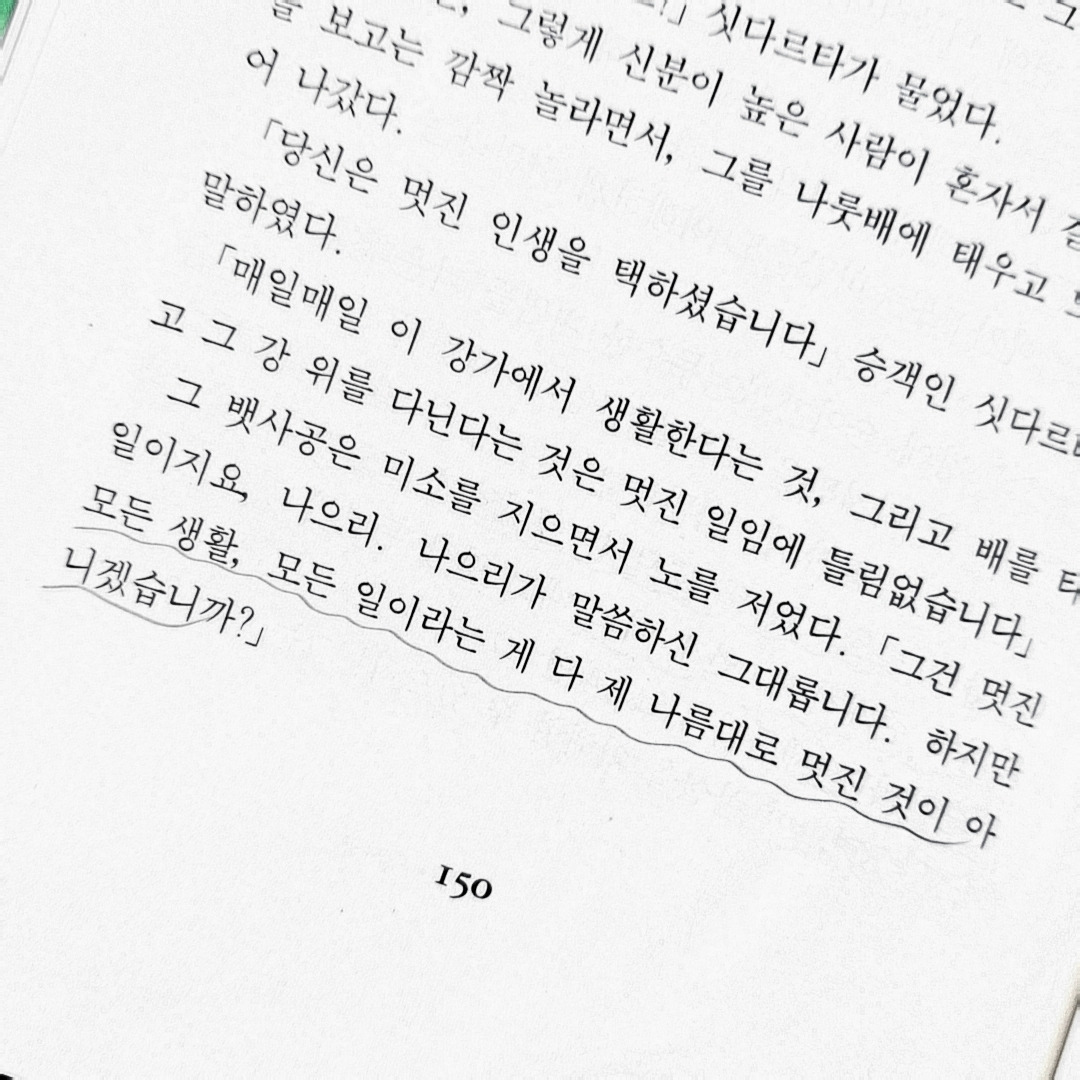 싯다르타가 물었다.
그렇게 신분이 높은 사람이 혼자서
보고는 깜짝 놀라면서, 그를 나룻배에 태우고
어 나갔다.
「당신은 멋진 인생을 택하셨습니다」 승객인 싯다르
말하였다.
「매일매일 이 강가에서 생활한다는 것, 그리고 배를 타
고 그 강 위를 다닌다는 것은 멋진 일임에 틀림없습니다」
그 뱃사공은 미소를 지으면서 노를 저었다. 「그건 멋진
일이지요, 나으리. 나으리가 말씀하신 그대롭니다. 하지만
모든 생활, 모든 일이라는 게 다 제 나름대로 멋진 것이 아
니겠습니까?」
150